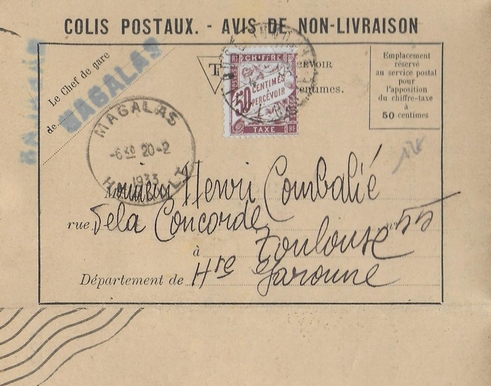 COLIS POSTAUX. - AVIS DE NON-LIVRAISON
Le Chef de gare
de MAGALAS
T
50 CENTIMES
A PERCEVOIR
TAXE
Emplacement
réservé
au service postal
pour
l'apposition
du chiffre-taxe
à
50 centimes
MAGALAS
20-2
1933
Monsieur Henri Combalié
rue, de la Concorde, n° 55
à Toulouse
Département de Hte Garonne